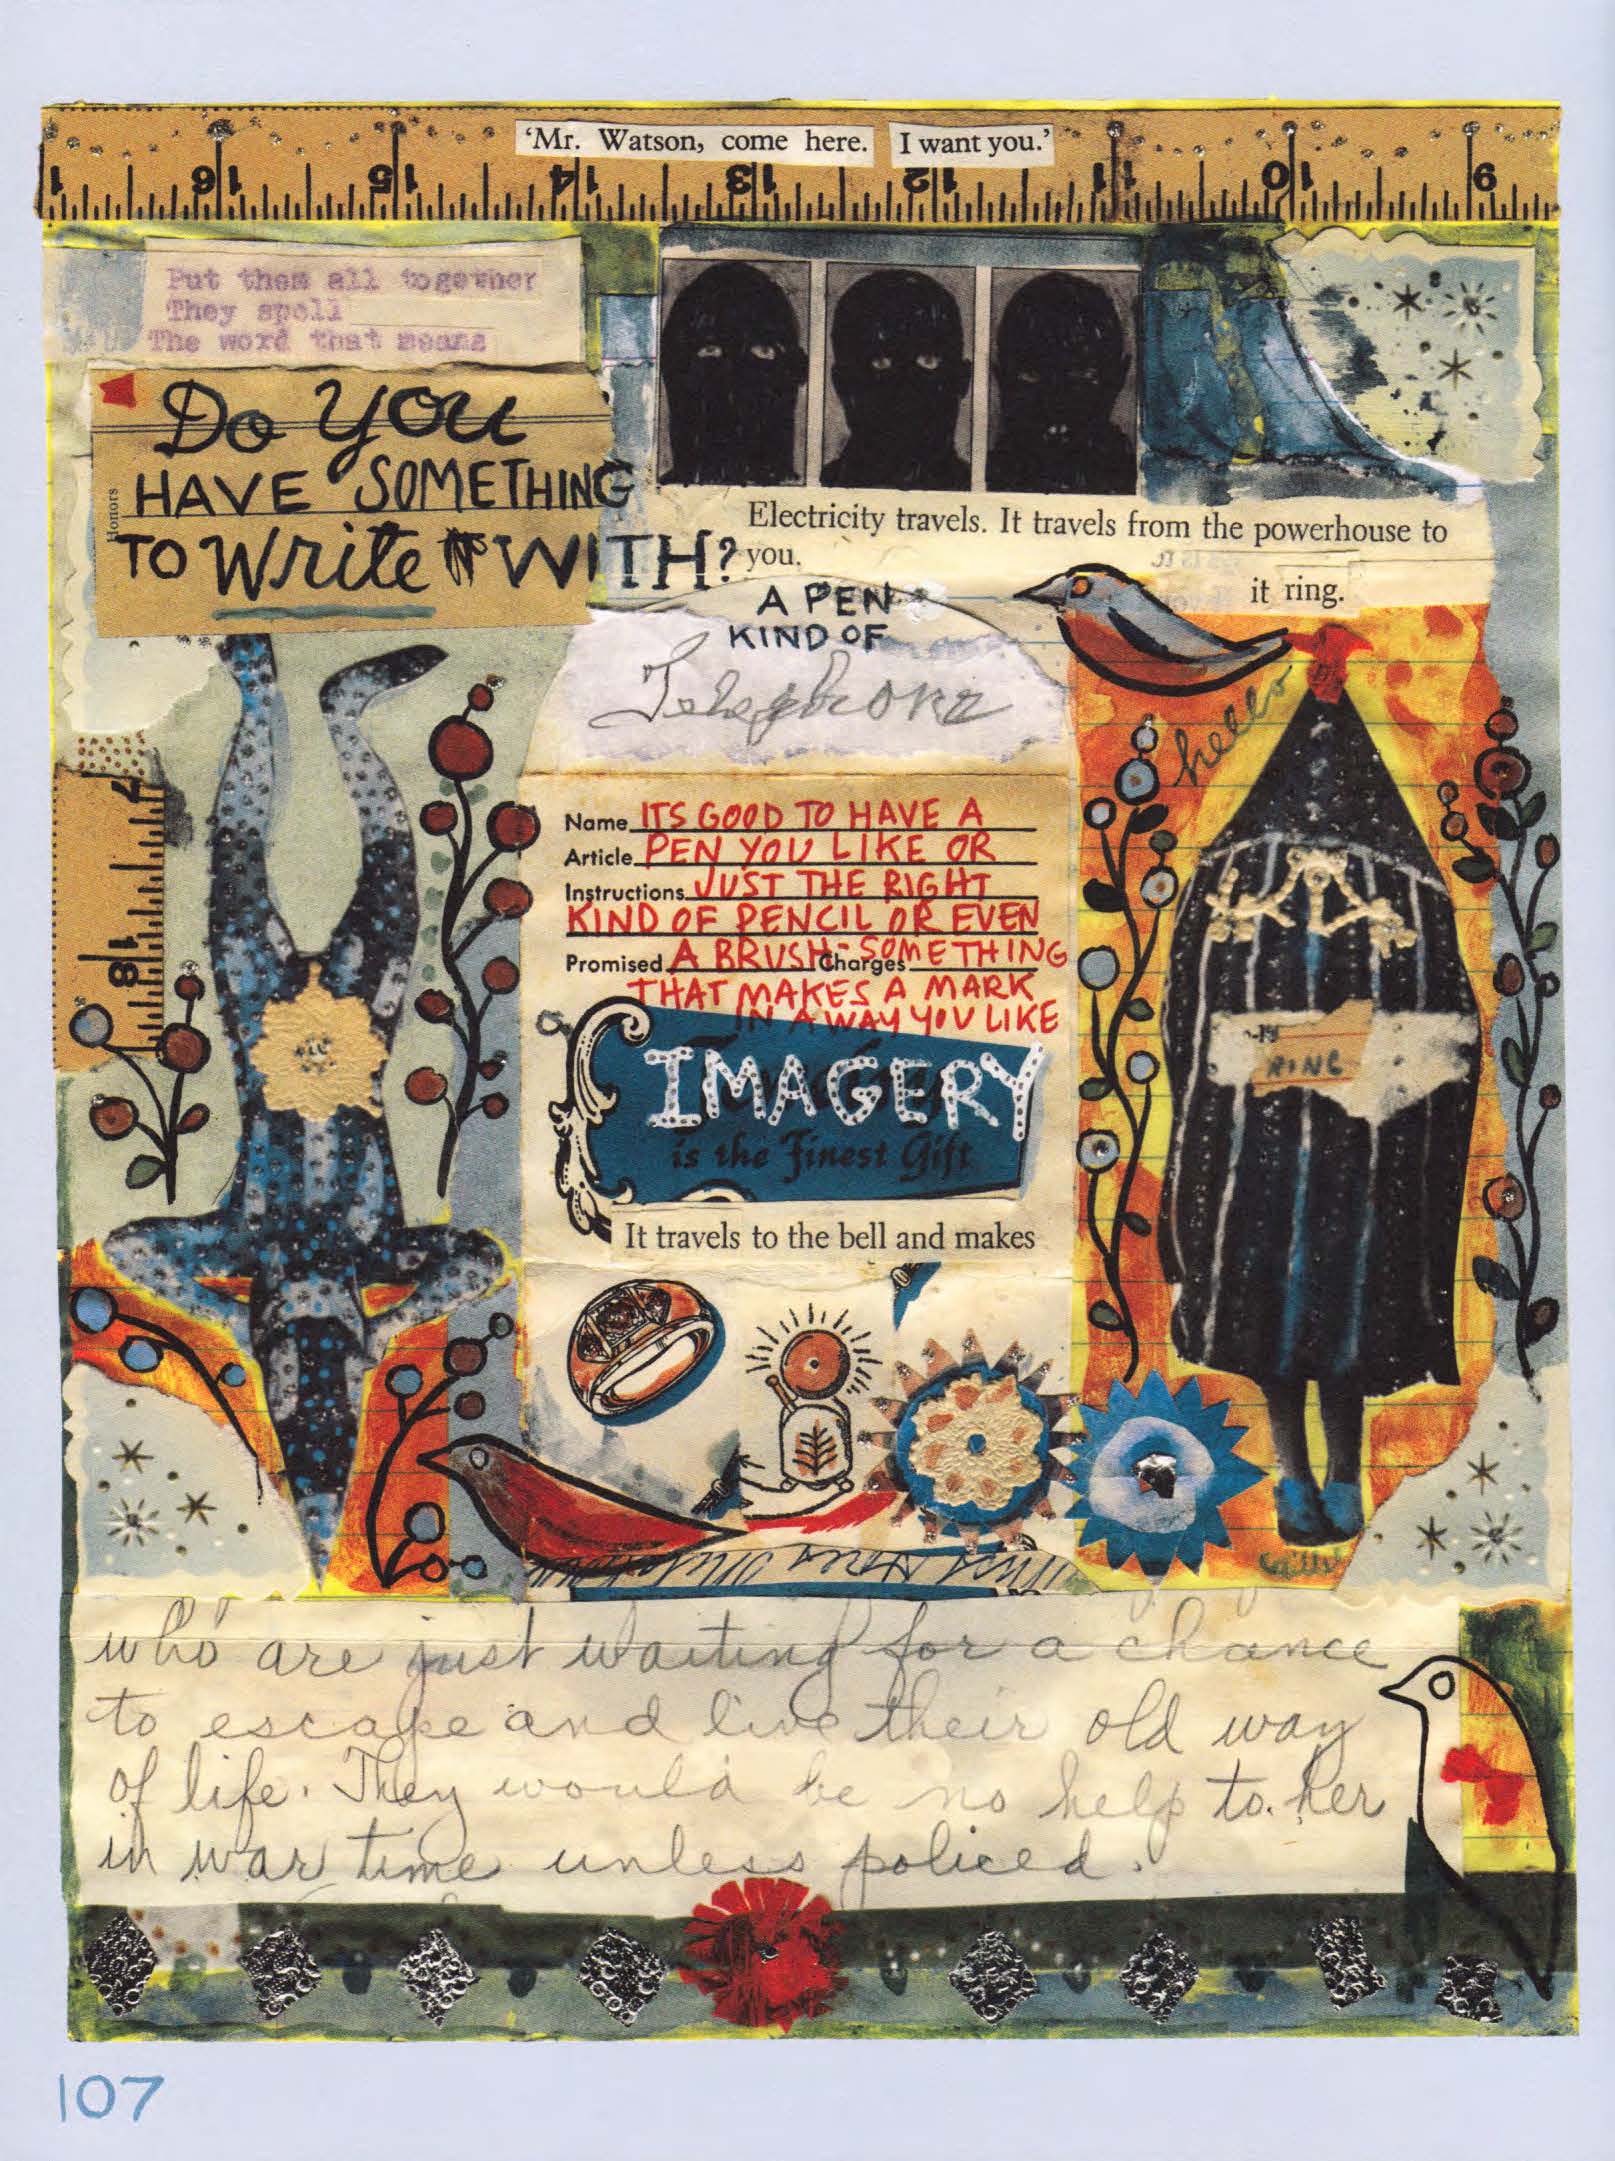 'Mr. Watson, come here. I want you.'
1 16 15 14 13 12 11 10 9
Put them all together
They spell
The word that means
Do You
HAVE SOMETHING
Honors
TO Write WITH?
Electricity travels. It travels from the powerhouse to
you.
it ring.
A PEN
KIND OF
Telephone
hello
17
18
Name ITS GOOD TO HAVE A
Article PEN YOU LIKE OR
Instructions JUST THE RIGHT
KIND OF PENCIL OR EVEN
Promised A BRUSH- Charges SOMETHING
THAT MAKES A MARK
IN A WAY YOU LIKE
IMAGERY
is the Finest Gift
RING
It travels to the bell and makes
who are just waiting for a chance
to escape and live their old way
of life. They would be no help to her
in war time unless policed.
107